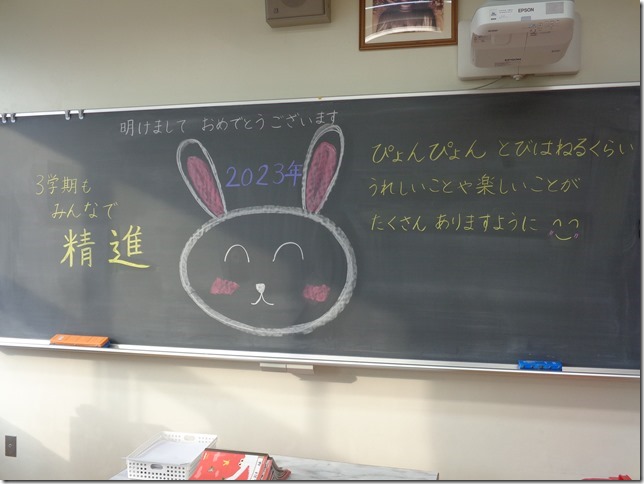 EPSON
明けまして おめでとうございます
2023年
3学期も
みんなで
精進
ぴょんぴょん とびはねるくらい
うれしいことや楽しいことが
たくさん ありますように